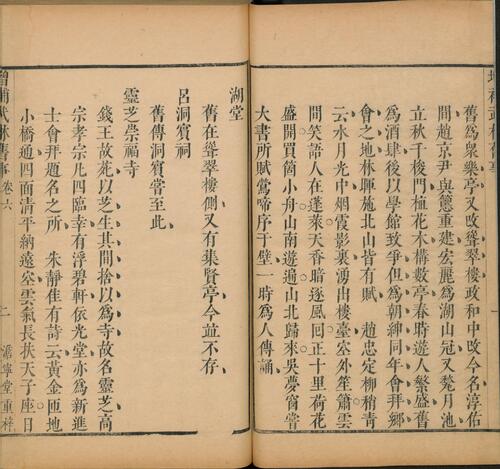 舊為衆樂亭又改聳翠樓政和中改今名淳佑
間趙京尹與𥲅重建宏麗為湖山冠又甃月池
立秋千梭門植花木構數亭春時遊人繁盛舊
為酒肆後以學館致爭但為朝紳同年會拜鄉
會之地林暉施北山皆有賦　趙忠定柳梢青
云水月光中烟霞影裏湧出樓臺空外笙簫雲
間笑語人在蓬萊天香暗逐風回正十里荷花
盛開買箇小舟山南遊遍山北歸來吳夢窗嘗
大書所賦鶯啼序于壁一時為人傳誦
湖堂
舊在聳翠樓側又有集賢亭今並不存
呂洞賓祠
舊傳洞賓嘗至此
靈芝崇福寺
錢王故苑以芝生其間捨以為寺故名靈芝高
宗孝宗凡四臨幸有浮碧軒依光堂亦為新進
士會拜題名之所　朱靜佳有詩云黃金匝地
小橋通四面清平納遠空雲氣長扶天子座日
增補武林舊事　卷六　二　澹寧堂重梓